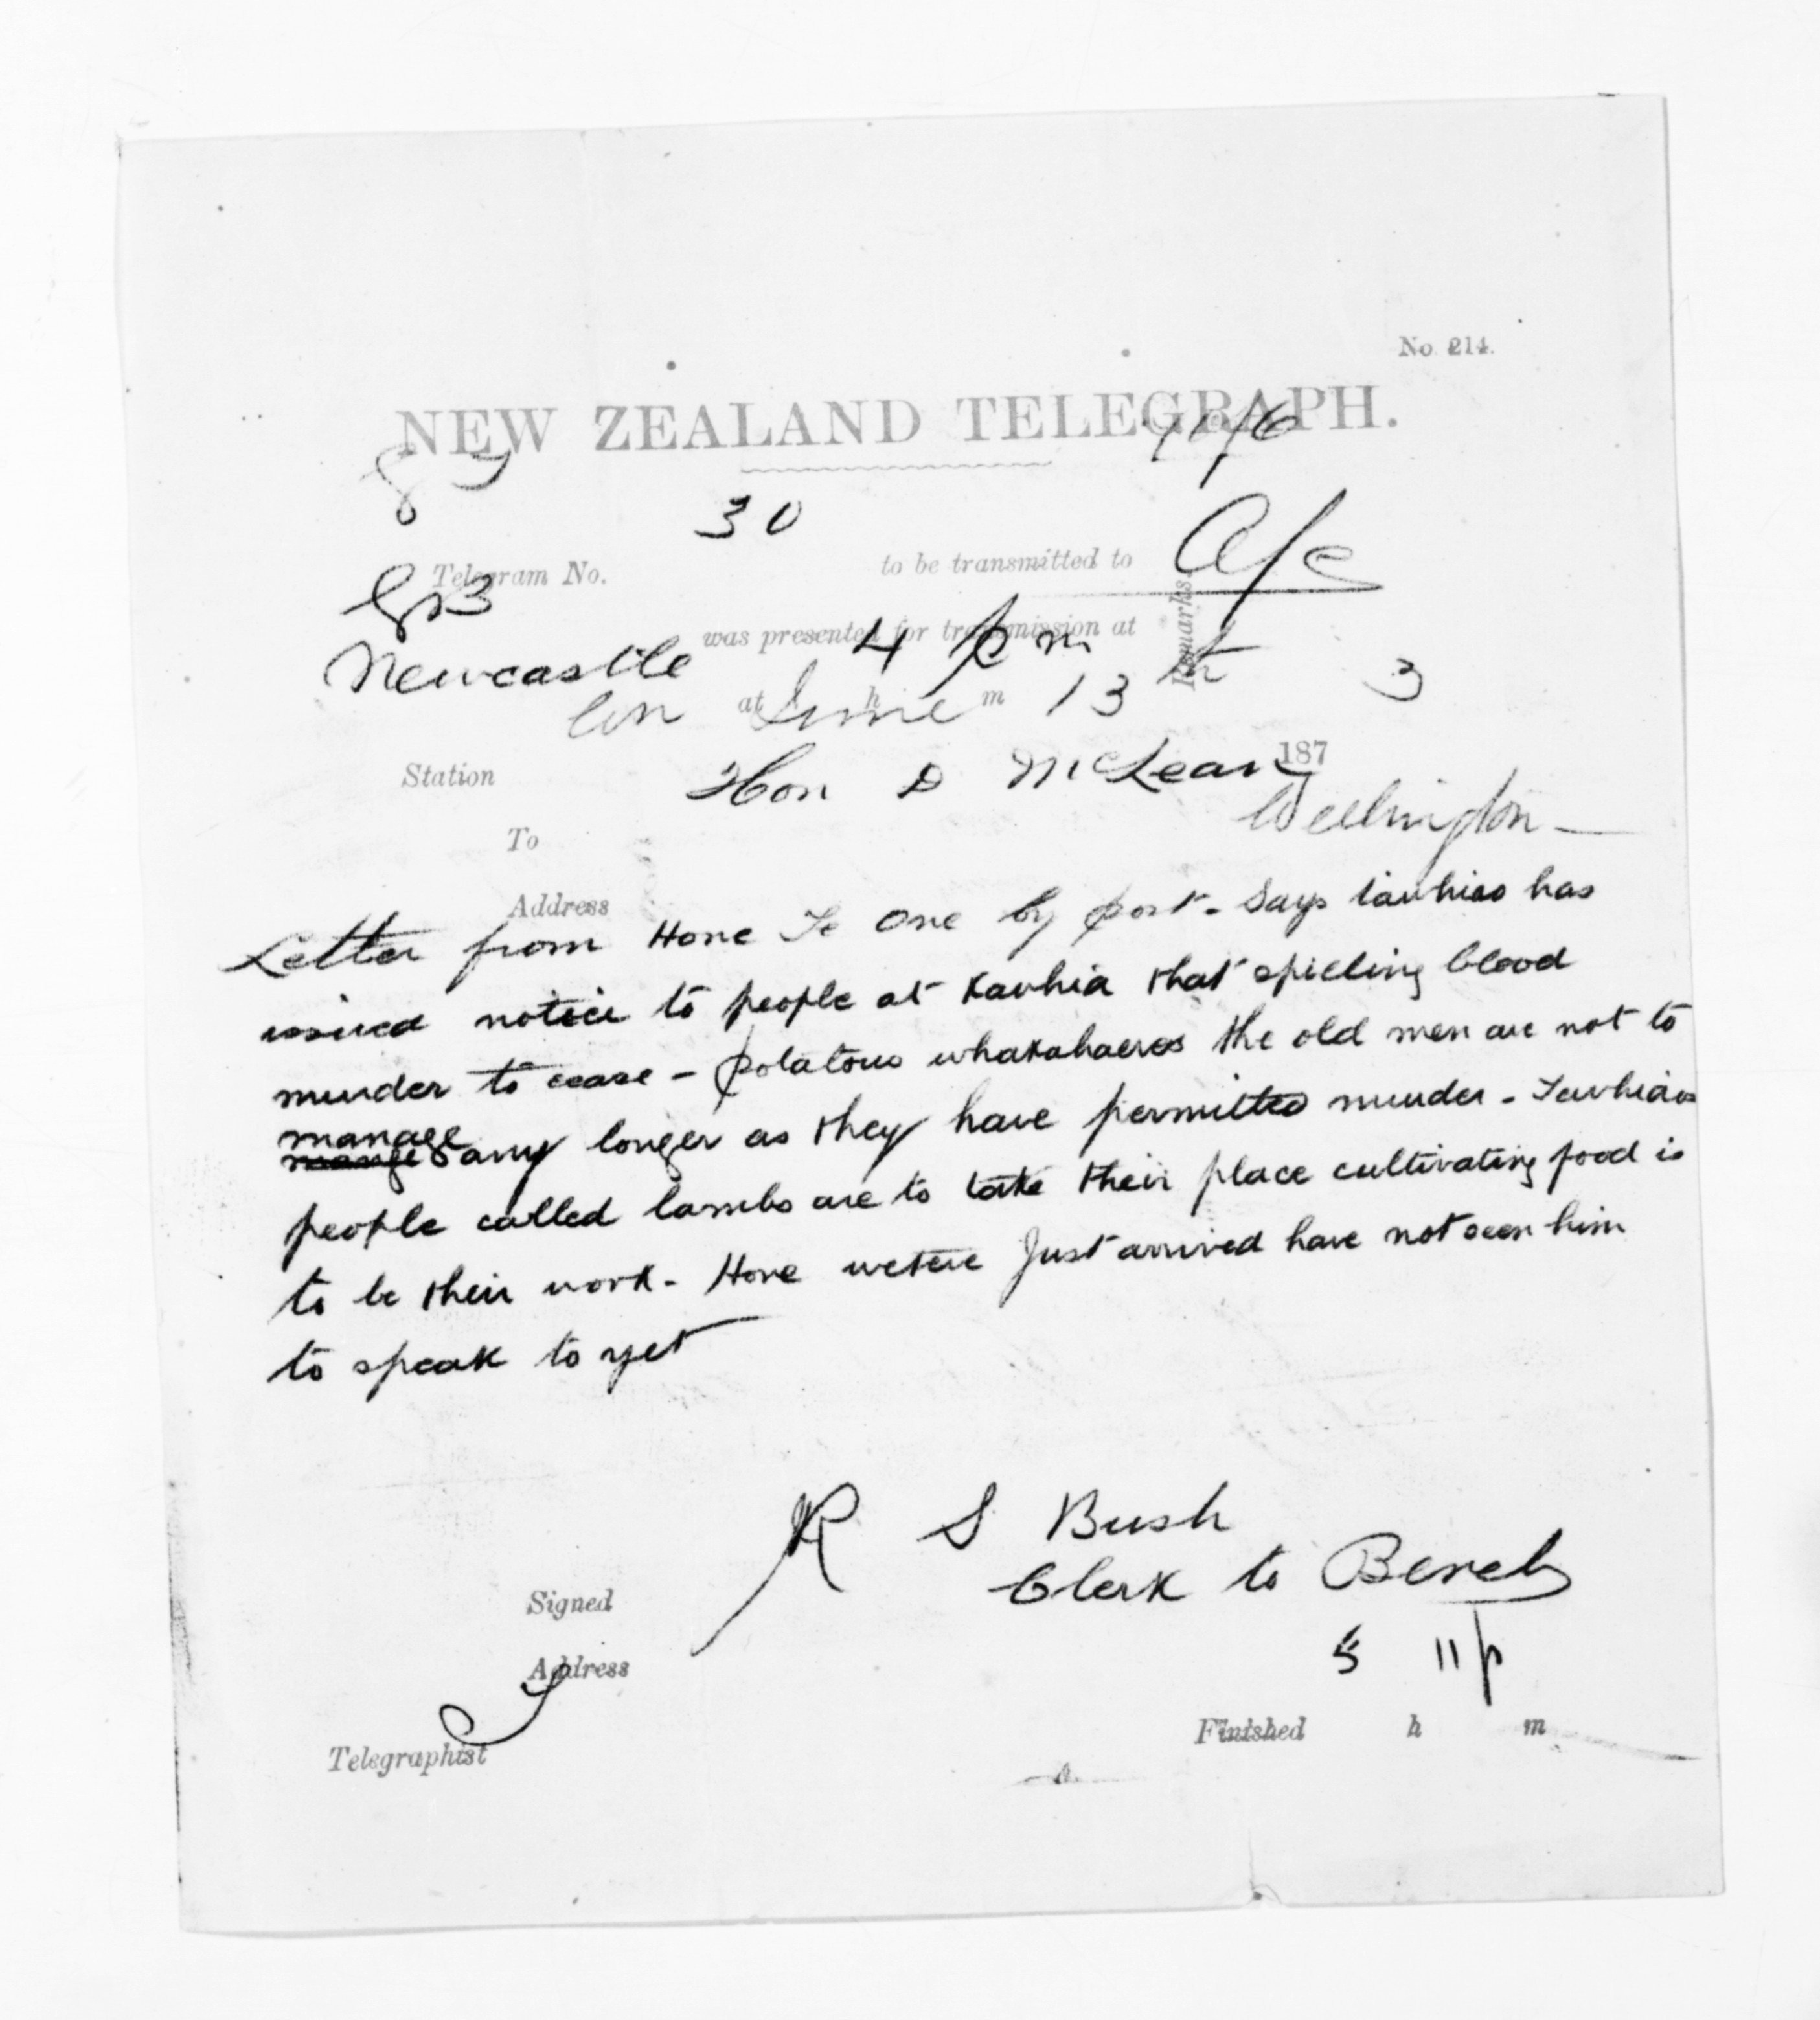 No. 214.
NEW ZEALAND TELEGRAPH.
30
Telegram No. to be transmitted to
Newcastle was presented for transmission at 4 pm
Remarks
On at June h m 13th 3
Station Hon D McLean 187
Wellington
To
Address
Letter from Hone Te One by post - Says tawhiao has
issued notice to people at Kawhia that spilling blood
murder to cease - potatous whakahaeres the old men are not to
manage
any longer as they have permitted murder - Tawhiaos
people called lambs are to take their place cultivating food is
to be their work - Hone wetere Just arrived have not seen him
to speak to yet
R S Bush
Clerk to Bench
Signed
Address
5 11 p
Finished h m
Telegraphist